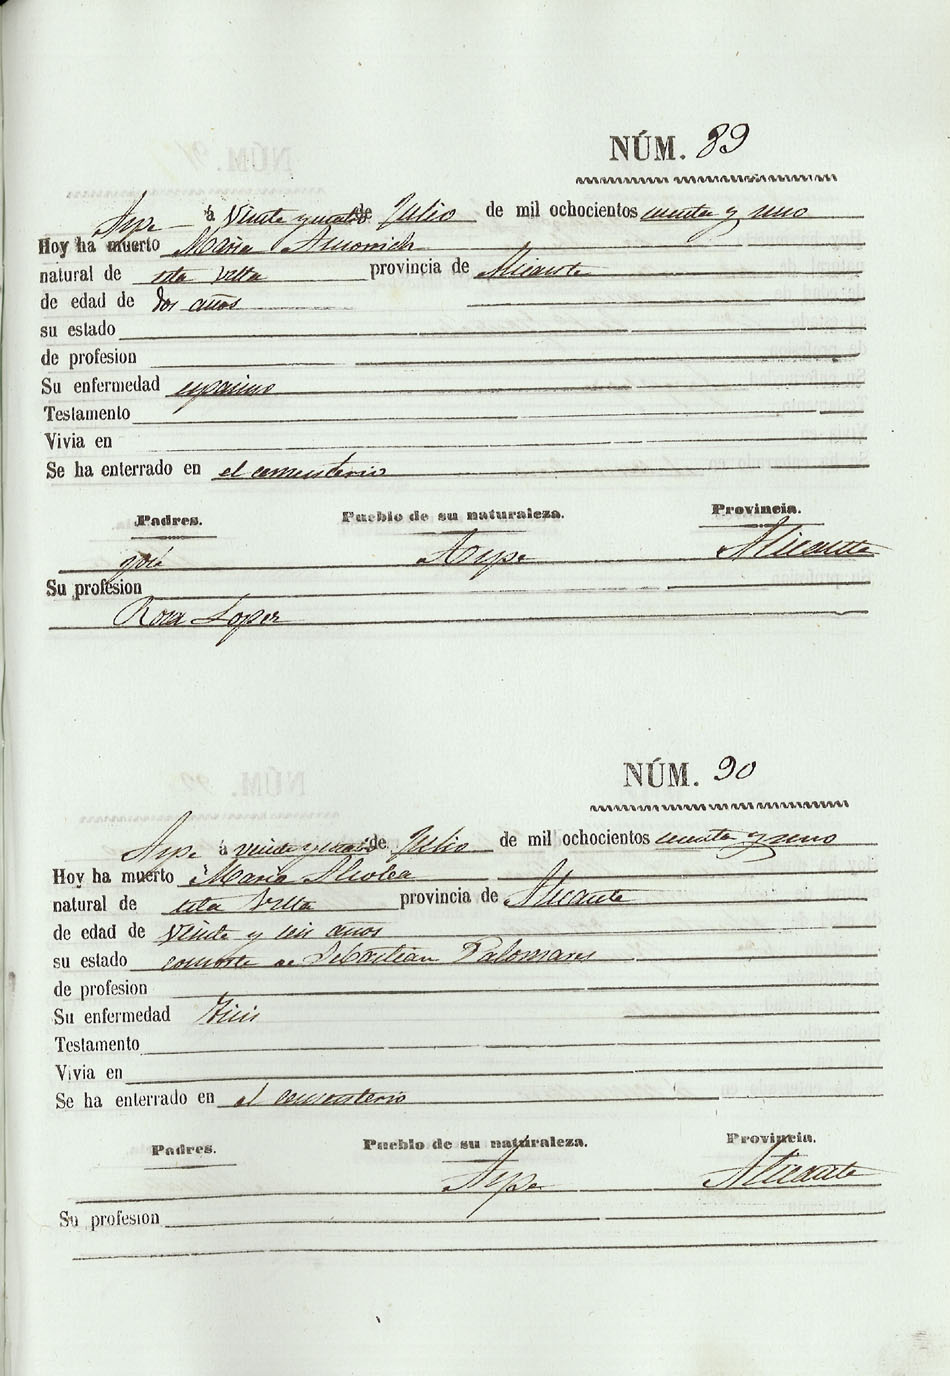 NÚM. 89
Aspe á Veinte y cuatro de Julio de mil ochocientos cuenta y uno
Hoy ha muerto Maria
natural de esta Villa provincia de Alicante
de edad de dos años
su estado
de profesion
Su enfermedad espasmo
Testamento
Vivia en
Se ha enterrado en el cementerio
Padres. Pueblo de su naturaleza. Provincia.
José Aspe Alicante
Su profesion
Rosa Lopez
NÚM. 90
Aspe á veinte y cuatro de Julio de mil ochocientos cuenta y uno
Hoy ha muerto Maria
natural de esta Villa provincia de Alicante
de edad de Veinte y seis años
su estado consorte de Sebastian Palomares
de profesion
Su enfermedad Tisis
Testamento
Vivia en
Se ha enterrado en el cementerio
Padres. Pueblo de su naturaleza. Provincia.
Aspe Alicante
Su profesion